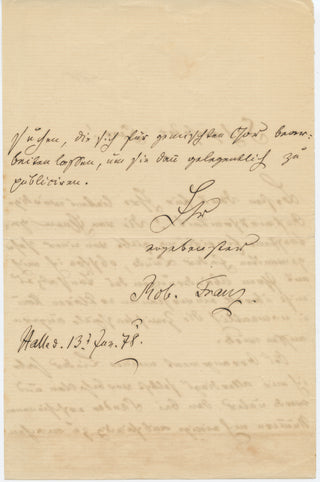 suchen, die sich für gemischten Chor bearbeiten
lassen, um sie dann gelegentlich zu
publiciren.
Ihr
ergebenster
Rob. Franz.
Halle d. 13t Jan. 78.